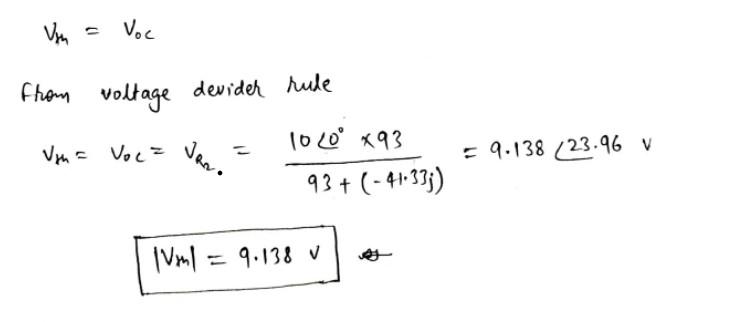 Vth = Voc
From voltage devider rule
Vth = Voc = VR2. = 10∠0° ×93 / 93 + (-41.33j) = 9.138 ∠23.96 V
|Vth| = 9.138 V